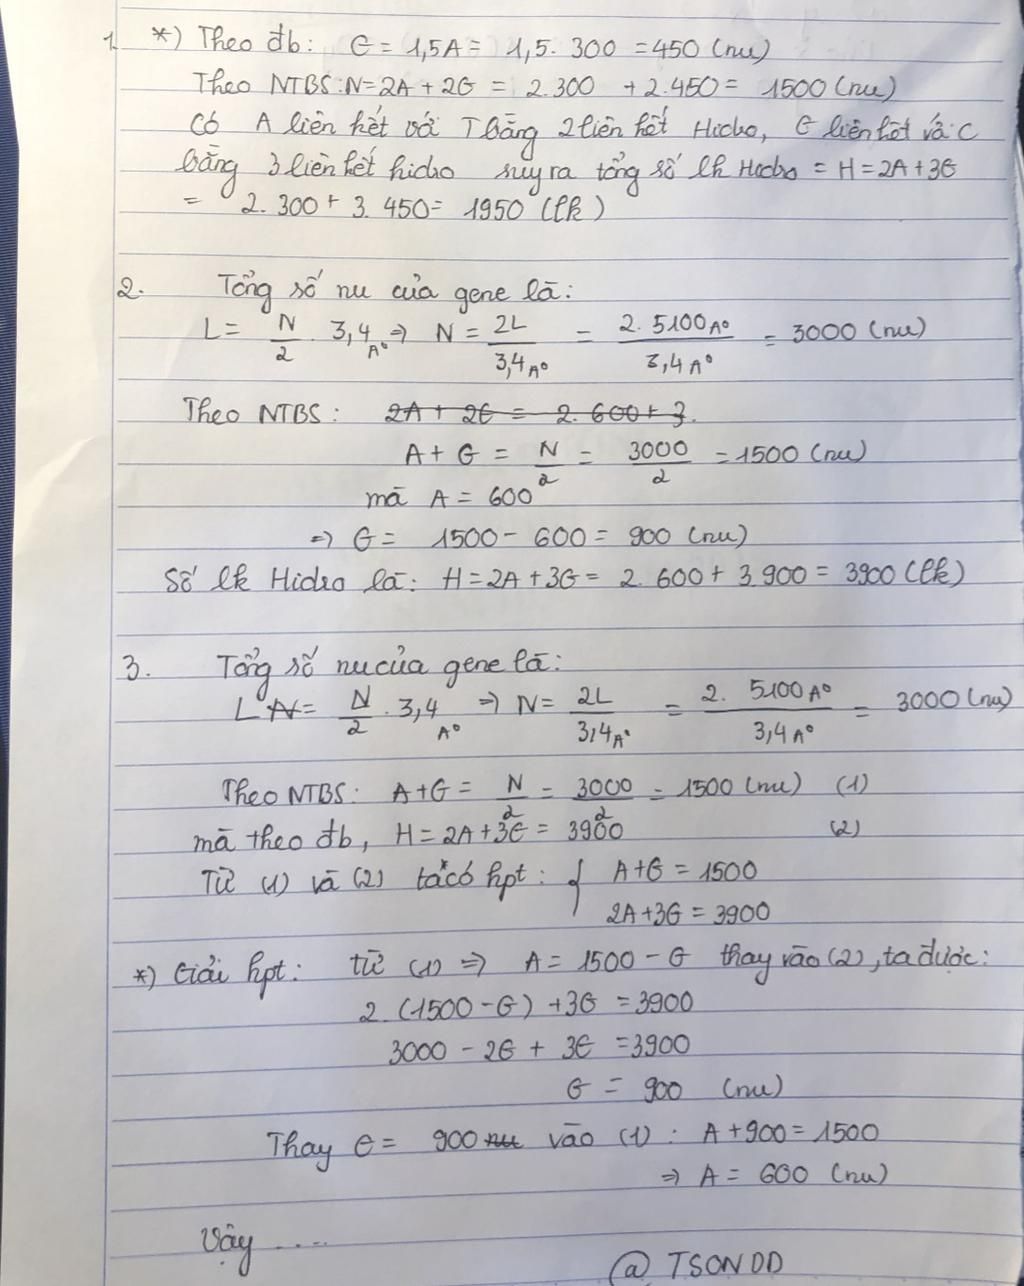 1. *) Theo đb: G = 1,5A = 1,5. 300 = 450 (nu)
Theo NTBS: N = 2A + 2G = 2.300 + 2.450 = 1500 (nu)
Có A liên kết với T bằng 2 liên kết Hidro, G liên kết với C
bằng 3 liên kết hidro suy ra tổng số lk Hidro = H = 2A + 3G
= 2.300 + 3.450 = 1950 (lk)
2. Tổng số nu của gene là:
L = N/2 . 3,4 A° ⇒ N = 2L/3,4 A° = 2.5100 A°/3,4 A° = 3000 (nu)
Theo NTBS: 2A + 2G = 2.600 + 3.
A + G = N/2 = 3000/2 = 1500 (nu)
mà A = 600
⇒ G = 1500 - 600 = 900 (nu)
Số lk Hidro là: H = 2A + 3G = 2.600 + 3.900 = 3900 (lk)
3. Tổng số nu của gene là:
L N = N/2 . 3,4 A° ⇒ N = 2L/3,4 A° = 2. 5100 A°/3,4 A° = 3000 (nu)
Theo NTBS: A + G = N/2 = 3000/2 = 1500 (nu) (1)
mà theo đb, H = 2A + 3G = 3900 (2)
Từ (1) và (2) ta có hpt: { A + G = 1500
2A + 3G = 3900
*) Giải hpt: từ (1) ⇒ A = 1500 - G thay vào (2), ta được:
2.(1500 - G) + 3G = 3900
3000 - 2G + 3G = 3900
G = 900 (nu)
Thay G = 900 nu vào (1): A + 900 = 1500
⇒ A = 600 (nu)
Vậy ....
@ TSONDD